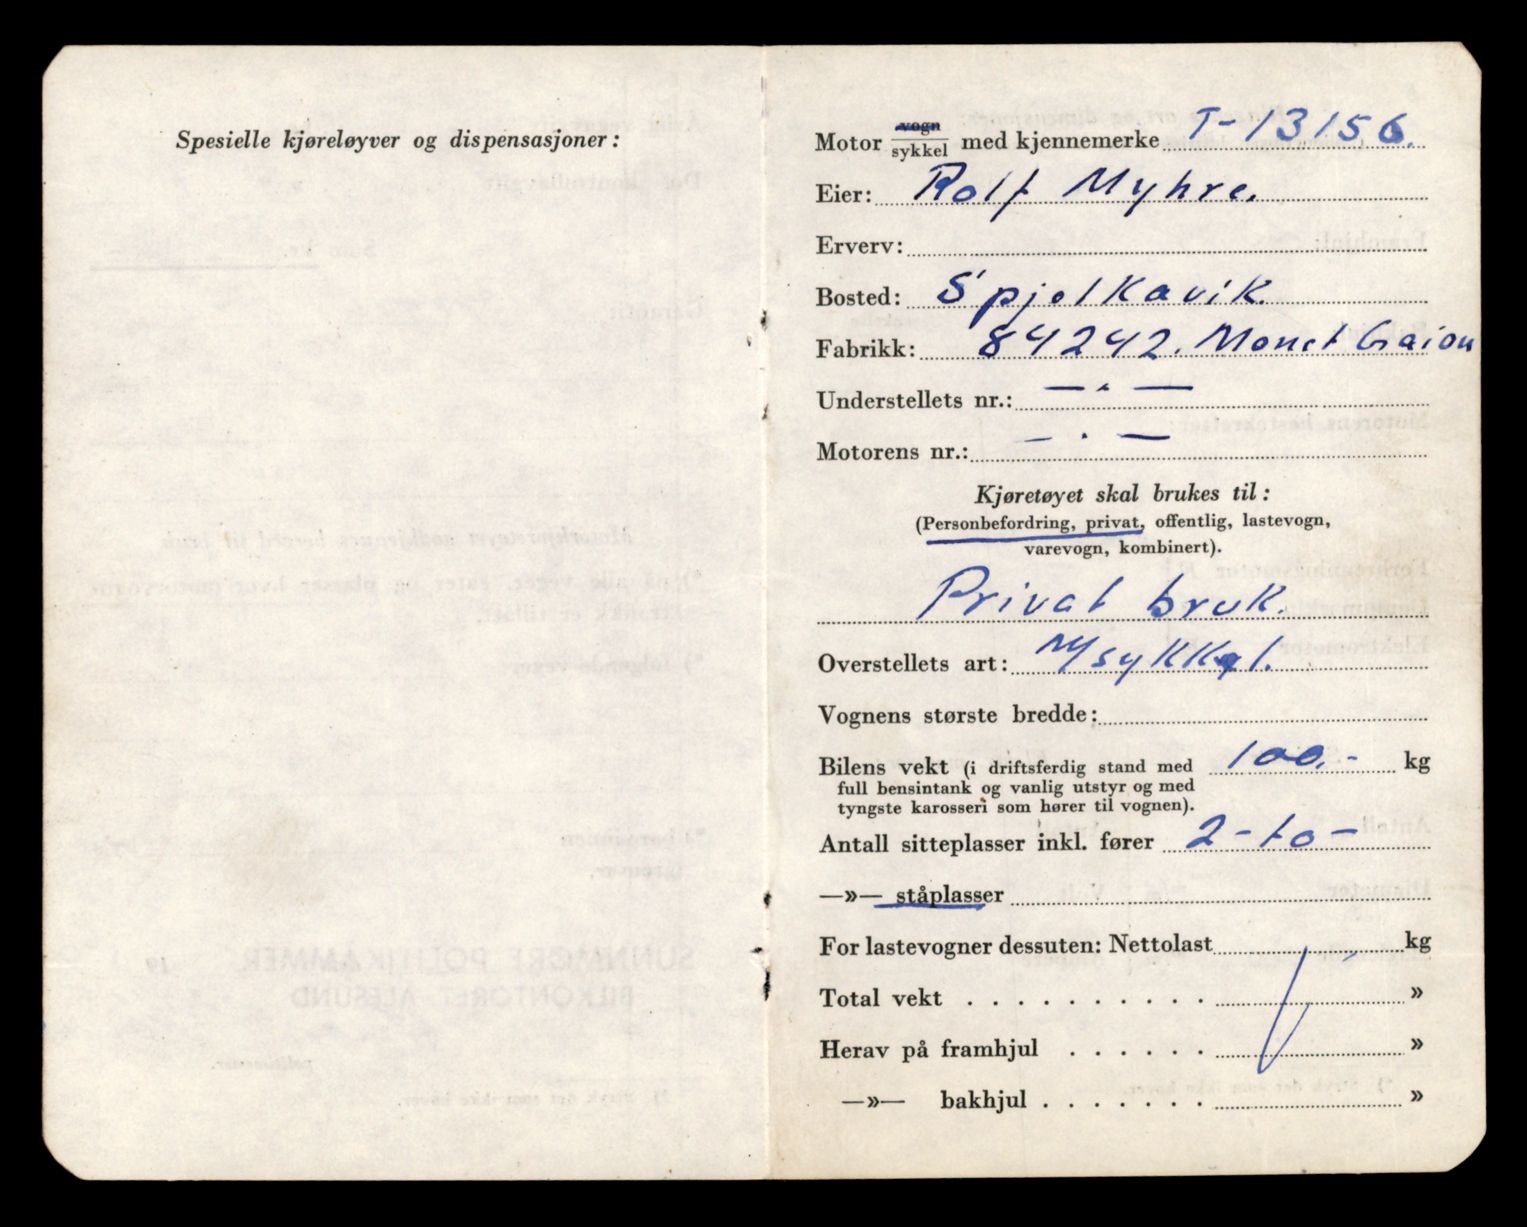 Spesielle kjøreløyver og dispensasjoner:
Motor vogn/sykkel med kjennemerke T-13156.
Eier: Rolf Myhre.
Erverv:
Bosted: Spjelkavik.
Fabrikk: 84242. Monet Gaion
Understellets nr.: — . —
Motorens nr.: — . —
Kjøretøyet skal brukes til:
(Personbefordring, privat, offentlig, lastevogn,
varevogn, kombinert).
Privat bruk.
Overstellets art: M/sykkel.
Vognens største bredde:
Bilens vekt (i driftsferdig stand med 100.- kg
full bensintank og vanlig utstyr og med
tyngste karosseri som hører til vognen).
Antall sitteplasser inkl. fører 2-to-
—»— ståplasser
For lastevogner dessuten: Nettolast kg
Total vekt . . . . . . . . . . »
Herav på framhjul . . . . . . »
—»— bakhjul . . . . . . . »